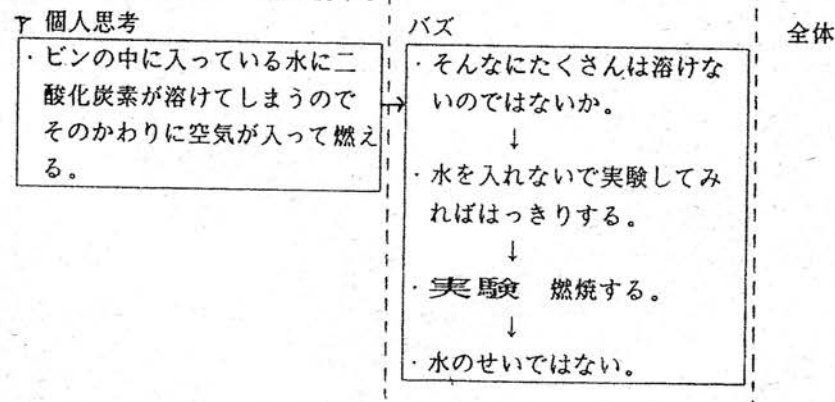 ア 個人思考
・ビンの中に入っている水に二
酸化炭素が溶けてしまうので
そのかわりに空気が入って燃え
る。
バズ
・そんなにたくさんは溶けな
いのではないか。
↓
・水を入れないで実験してみ
ればはっきりする。
↓
・実験 燃焼する。
↓
・水のせいではない。
全体